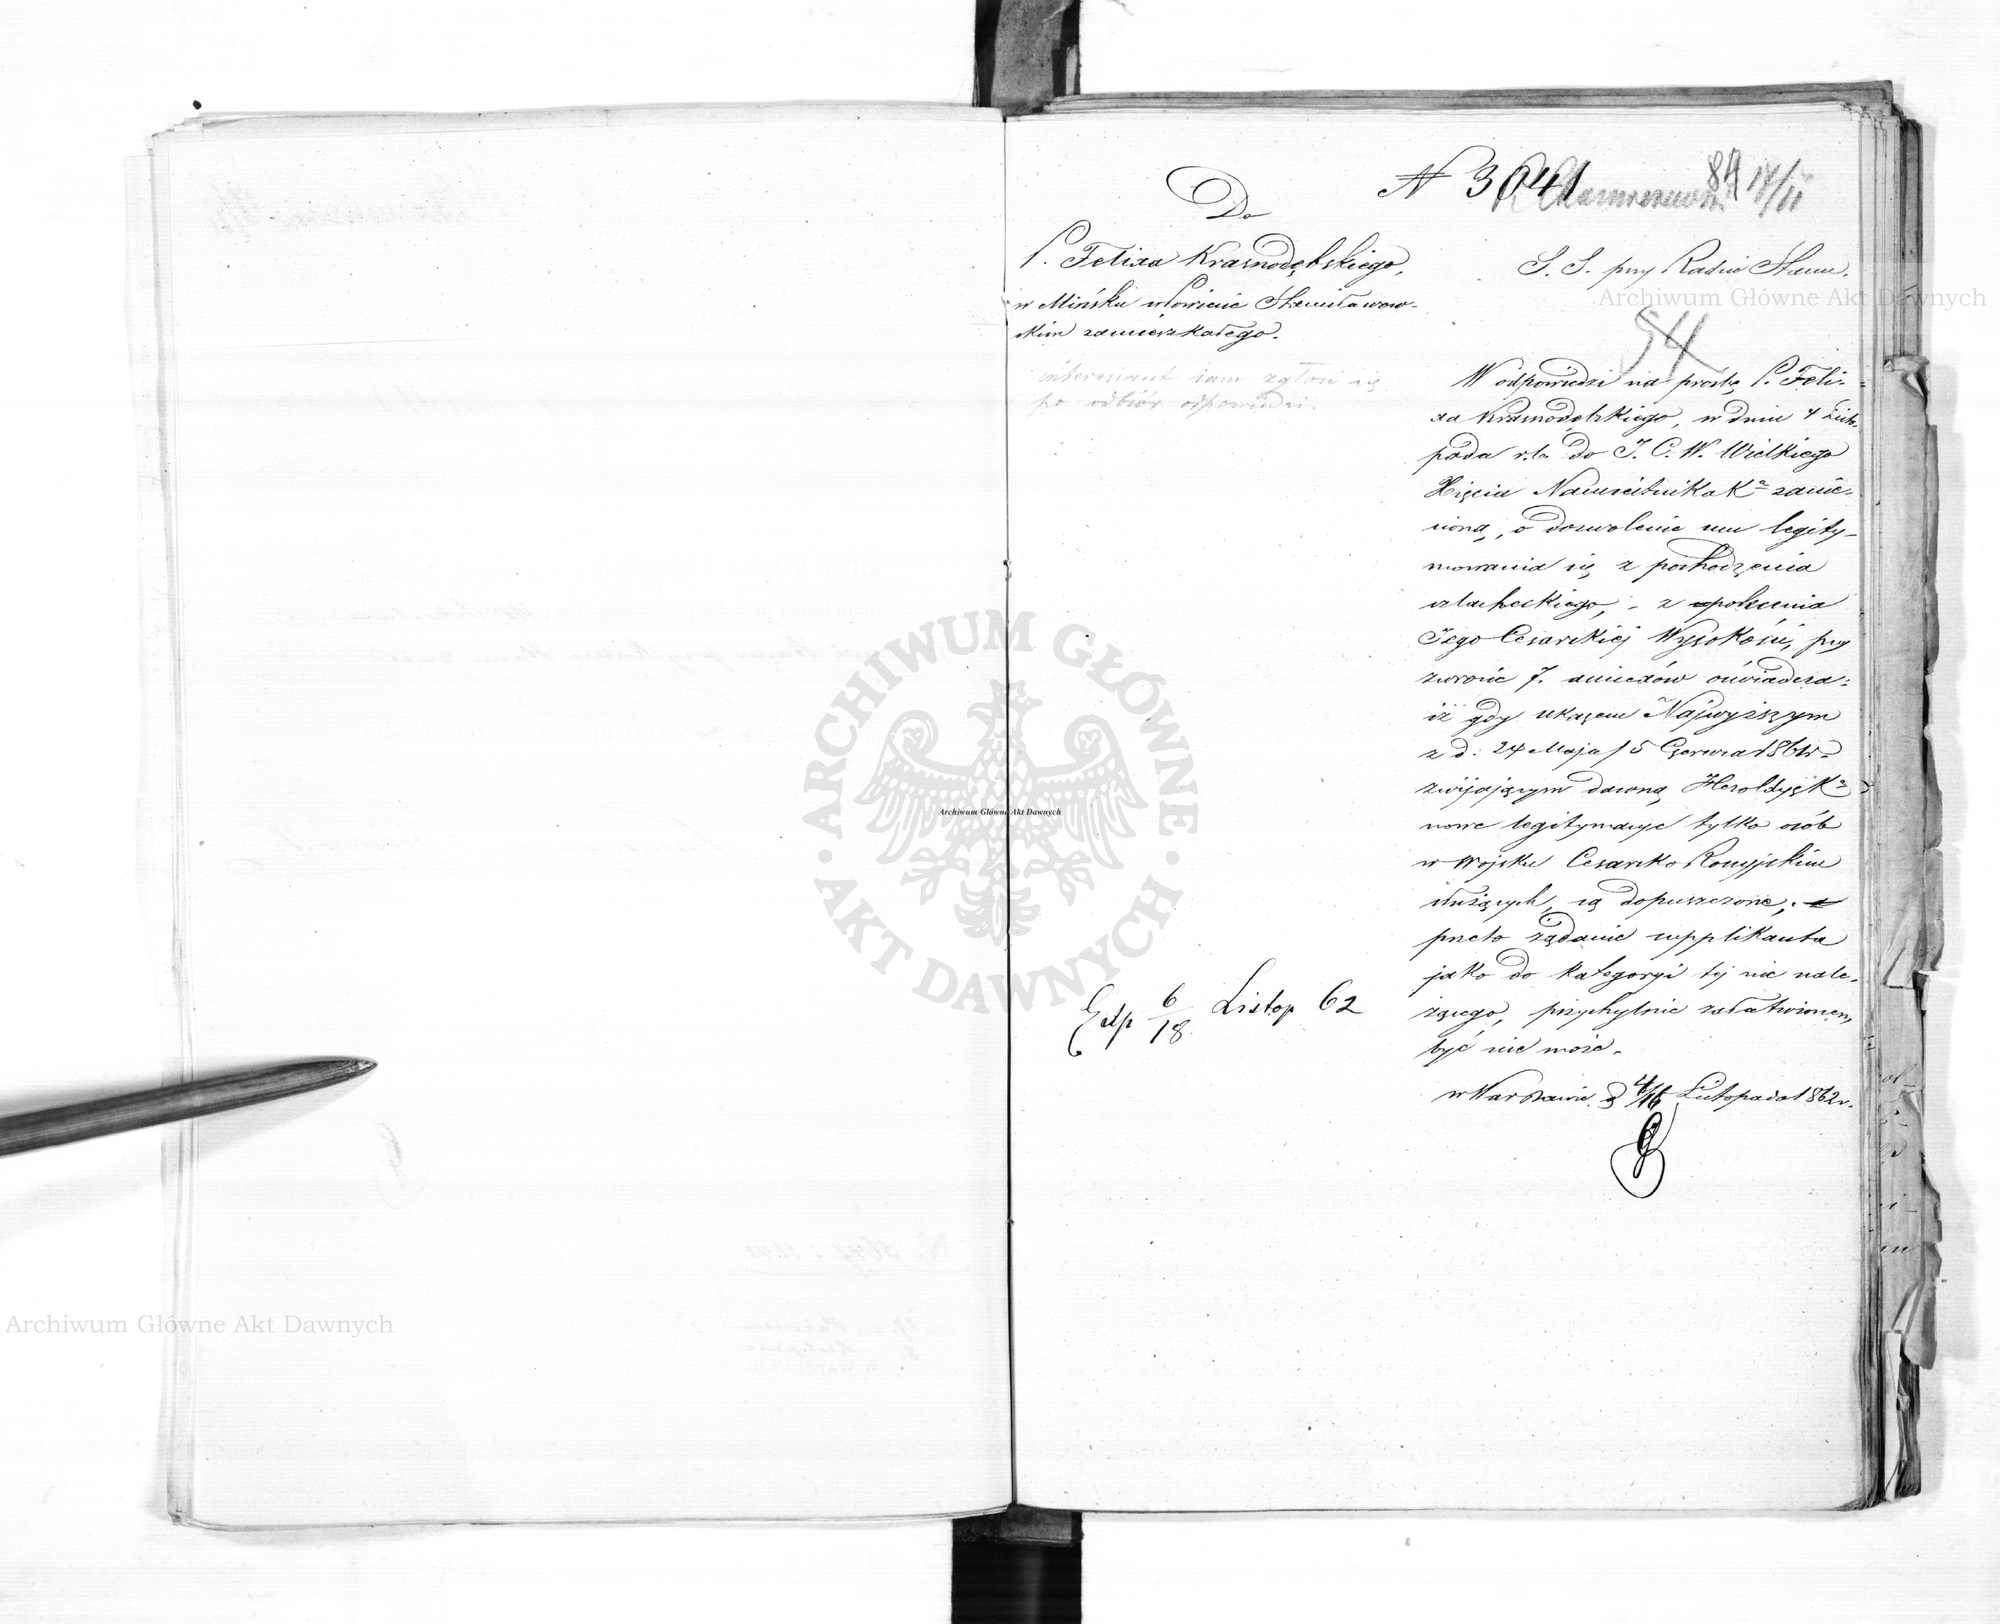 N 3641
84 17/11
Do
P. Felixa Krasnodębskiego,
w Mińsku w Powiecie Stanisławow-
skim zamieszkałego.
interesant sam zgłosi się
po odbiór odpowiedzi.
S. S. przy Radzie Stanu.
54
W odpowiedzi na prośbę P. Feli-
xa Krasnodębskiego, w dniu 4 Listo-
pada r.b. do J. C. W. Wielkiego
Xięcia Namiestnika Kа zanie-
sioną, o dozwolenie mu legity-
mowania się z pochodzenia
szlacheckiego, - z polecenia
Jego Cesarskiej Wysokości, przy
zwrocie 7. anexów oświadcza:
iż gdy ukazem Najwyższym
z d. 24 Maja / 5 Czerwca 1861 r.
zwijającym dawną Heroldyę Kа
nowe legitymacye tylko osób
w Wojsku Cesarsko Rossyjskim
służących, są dopuszczone,
przeto żądanie supplikanta
jako do kategoryi tej nie nale-
żącego, przychylnie załatwionem
być nie może.
w Warszawie d 4/16 Listopada 1862 r.
Exp 6/18 Listop 62
Archiwum Główne Akt Dawnych
ARCHIWUM GŁÓWNE AKT DAWNYCH
Archiwum Główne Akt Dawnych
Archiwum Główne Akt Dawnych